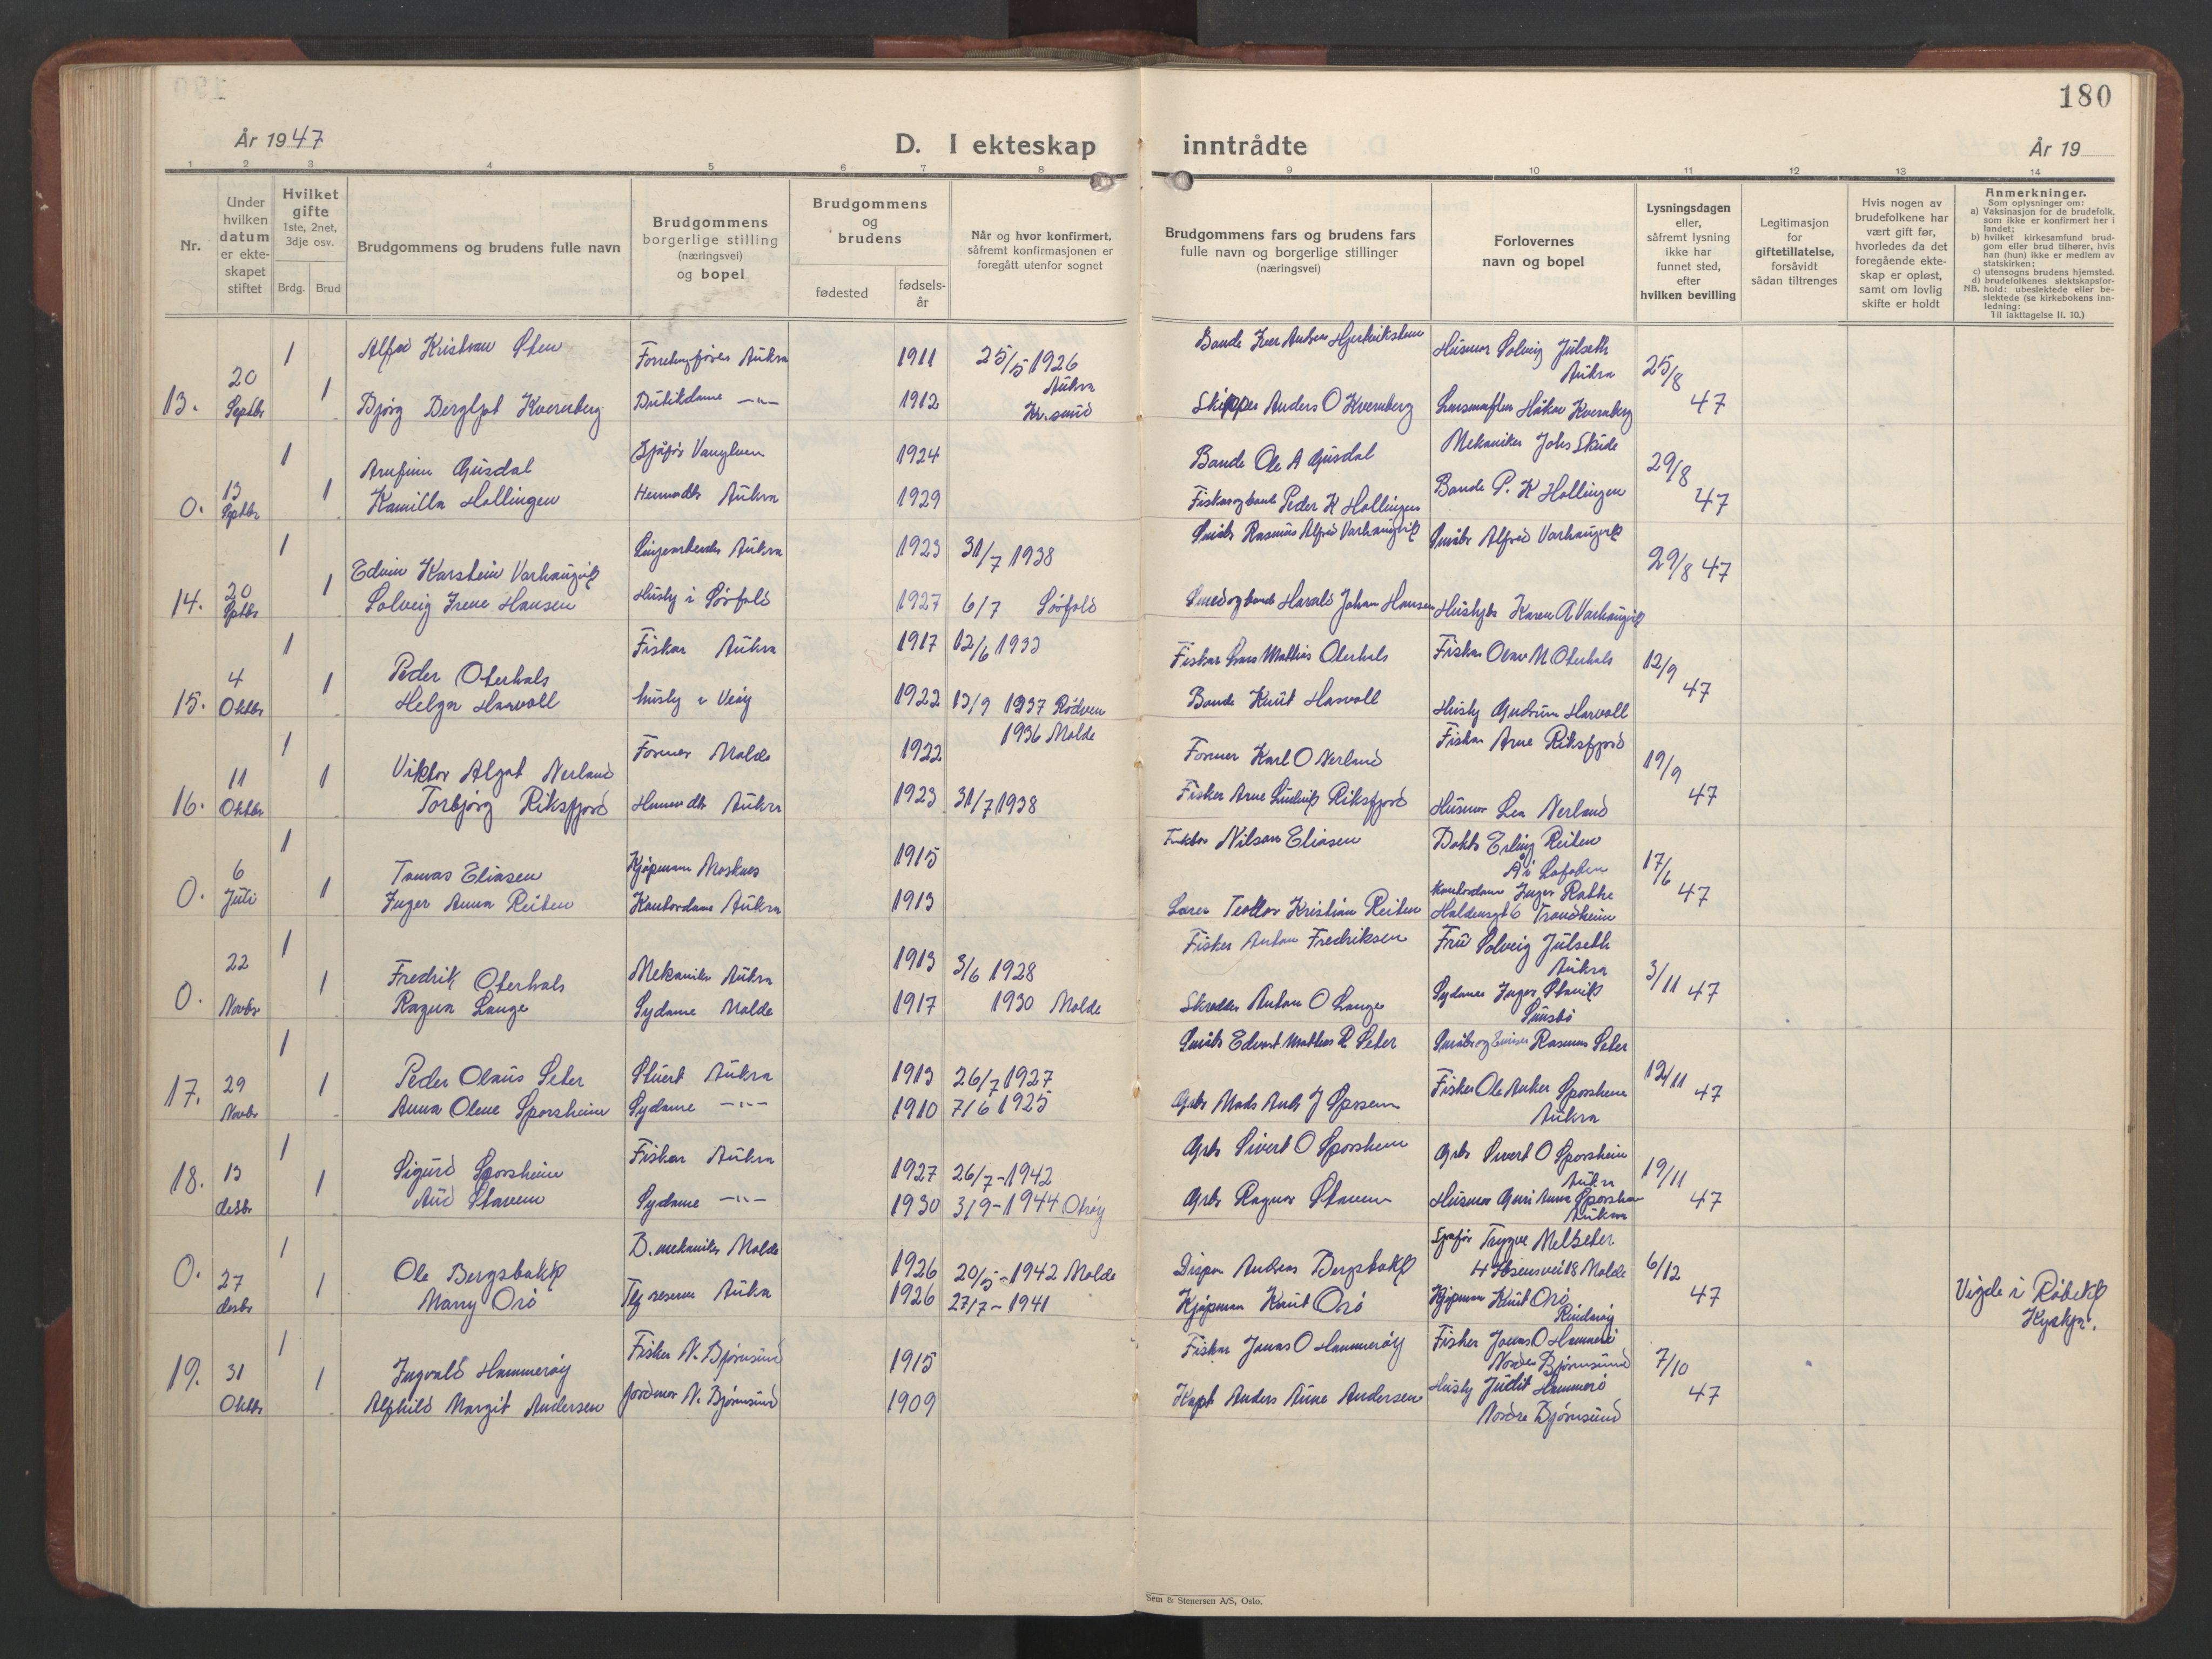 180
År 1947
D. I ekteskap inntrådte
År 19
1 2 3 4 5 6 7 8 9 10 11 12 13 14
Nr.
Under hvilken datum er ekteskapet stiftet
Hvilket gifte 1ste, 2net, 3dje osv.
Brdg. Brud
Brudgommens og brudens fulle navn
Brudgommens borgerlige stilling (næringsvei) og bopel
Brudgommens og brudens
fødested
fødselsår
Når og hvor konfirmert, såfremt konfirmasjonen er foregått utenfor sognet
Brudgommens fars og brudens fars fulle navn og borgerlige stillinger (næringsvei)
Forlovernes navn og bopel
Lysningsdagen eller, såfremt lysning ikke har funnet sted, efter hvilken bevilling
Legitimasjon for giftetillatelse, forsåvidt sådan tiltrenges
Hvis nogen av brudefolkene har vært gift før, hvorledes da det foregående ekteskap er opløst, samt om lovlig skifte er holdt
Anmerkninger.
Som oplysninger om:
a) Vaksinasjon for de brudefolk, som ikke er konfirmert her i landet;
b) hvilket kirkesamfund brudgom eller brud tilhører, hvis han (hun) ikke er medlem av statskirken;
c) utensogns brudens hjemsted.
d) brudefolkenes slektskapsforhold: ubeslektede eller beslektede (se kirkebokens innledning:
NB. Til iakttagelse II. 10.)
13. 20 Septbr 1 1
Alfred Kristian Sten Aukra 1911 25/5 1926 Aukra
Husmor Solveig Julseth Aukra 25/8 47
Bjørg Bergljot Kvernberg Butikdame -"- 1912 Kr.sund
Skipper Anders O Kvernberg Håkon Kvernberg
0. 13 Septbr 1 1
Arnfinn Gusdal Sjåfør 1924
Bonde Ole A Gusdal Mekaniker Johs Skude 29/8 47
Kamilla Hollingen Aukra 1929
Fisker og bonde Peder K Hollingen Bonde P. K Hollingen
14. 20 Septbr 1 1
Edvin Karstein Varhaugvik Aukra 1923 31/7 1938
Småbr Rasmus Alfred Varhaugvik Småbr Alfred Varhaugvik 29/8 47
Solveig Irene Hansen Hushj i Sørfold 1927 6/7 Sørfold
Smed og bonde Harald Johan Hansen Karen A Varhaugvik
15. 4 Oktbr 1 1
Peder Oterhals Fisker Aukra 1917 12/6 1933
Fisker Lars Mathias Oterhals Fisker Olav M Oterhals 12/9 47
Helga Harvoll hushj i Veøy 1922 13/9 1937 Rødven
Bonde Knut Harvoll Hushj Gudrun Harvoll
16. 11 Oktbr 1 1
Viktor Algot Nerland Former Molde 1922 1936 Molde
Former Karl O Nerland Fisker Arne Riksfjord 19/9 47
Torbjørg Riksfjord Aukra 1923 31/7 1938
Fisker Arne Ludvik Riksfjord Husmor Lea Nerland
0. 6 Juli 1 1
Tomas Eliasen Kjøpmann Mosknes 1915
Nilsan Eliasen Erling Reiten Å i Lofoten 17/6 47
Inger Anna Reiten Kontordame Aukra 1913
Lærer Teodor Kristian Reiten Kontordame Inger Rathe
Haldensgt 6 Trondheim
0. 22 Novbr 1 1
Fredrik Oterhals Mekaniker Aukra 1913 3/6 1928
Fisker Anton Fredriksen Fru Solveig Julseth Aukra 3/11 47
Ragna Lange Sydame Molde 1917 1930 Molde
Skredder Anton O Lange Sydame Inger Stavik
17. 29 Novbr 1 1
Peder Olaus Seter Stuert Aukra 1913 26/7 1927
Småbr Edvart Mathias R Seter Rasmus Seter 12/11 47
Anna Olene Sporsheim Sydame -"- 1910 7/6 1925
Gbr Mads Fisker Ole Anker Sporsheim Aukra
18. 13 desbr 1 1
Sigurd Sporsheim Fisker Aukra 1927 26/7-1942
Gbr Sivert O Sporsheim Gbr Sivert O Sporsheim Aukra 19/11 47
Aud Stavem Sydame -"- 1930 3/9-1944 Otrøy
Gbr Ragnar Stavem Husmor Guri Anna Sporsheim Aukra
0. 27 desbr 1 1
Ole Bergsbakk B.mekaniker Molde 1926 20/5-1942 Molde
Andreas Bergsbakk Sjåfør Trygve Melseter
H Ibsensvei 18 Molde 6/12 47
Marry Orø Tlf reserve Aukra 1926 27/7-1941
Kjøpman Knut Orø Kjøpman Knut Orø Rindarøy
Vigde i Røbekk Kyrkja.
19. 31 Oktbr 1 1
Ingvald Hammerøy Fisker N. Bjørnsund 1915
Fisker Jonas O Hammerøy Fisker Jonas O Hammerø
Nordre Bjørnsund 7/10 47
Alfhild Margit Andersen Jordmor N. Bjørnsund 1909
Kapt Anders Aune Andersen Hushj Judit Hammerø
Nordre Bjørnsund
Sem & Stenersen A/S, Oslo.